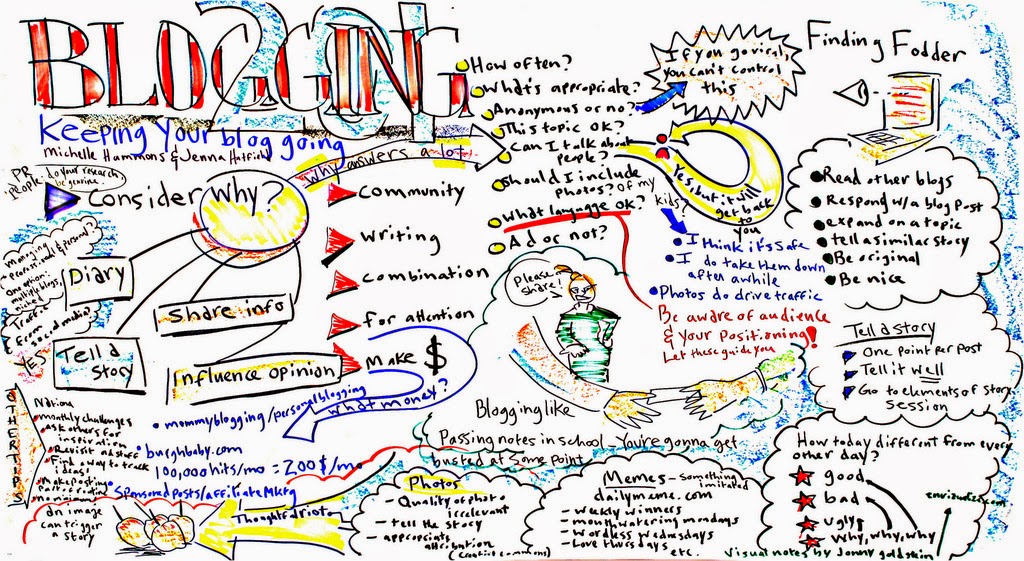 BLOGGING
201
Keeping Your blog going
Michelle Hammons & Jenna Hatfield
PR
People: do your research
be genuine
Consider
Why?
Why answers a lot
Diary
Share info
Tell a
Story
Influence opinion
Community
Writing
Combination
For attention
Make $
What money?
mommyblogging/personal blogging
burghbaby.com
100,000 hits/mo = 200$/mo
Sponsored posts/affiliate Mktg
Managing
Professional & personal?
One option:
multiple blogs,
Traffic
from
social media?
YES
OTHER TIPS
monthly challenges
Ask others for
inspiration
Revisit old stuff
Find a way to track
ideas!
Make posting
part of routine
an image
can trigger
a story
Thoughts of riot
How often?
What's appropriate?
Anonymous or no?
This topic ok?
Can I talk about
people?
Should I include
photos? of my
kids?
What language ok?
Ad or not?
If you go viral,
you can't control
this
Yes, but it will
get back
to
you
I think it's safe
I do take them down
after awhile
Photos do drive traffic
Be aware of audience
& your positioning!
Let these guide you
Please
share!
Blogging like
Passing notes in school - You're gonna get
busted at some point
Photos
- Quality of photo
irrelevant
- tell the story
- appropriate
attribution
(creative commons)
Memes - something
imitated
dailymeme.com
- weekly winners
- mouthwatering mondays
- Wordless Wednesdays
- Love thursdays
etc.
Finding Fodder
Read other blogs
Respond w/a blog Post
expand on a topic
tell a similar story
Be original
Be nice
Tell a story
One point per post
Tell it well
Go to elements of story
Session
How today different from every
other day?
good
bad
ugly
Why, why, why
visual notes by Jonny goldstein